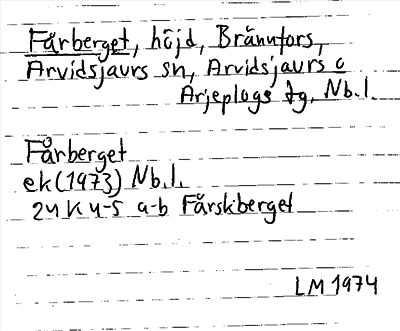 Fårberget, höjd, Brännfors,
Arvidsjaurs sn, Arvidsjaurs o
Arjeplogs tg, Nb.l.
Fårberget
ek(1973) Nb.l.
24K 4-5 a-b Fårskiberget
LM 1974